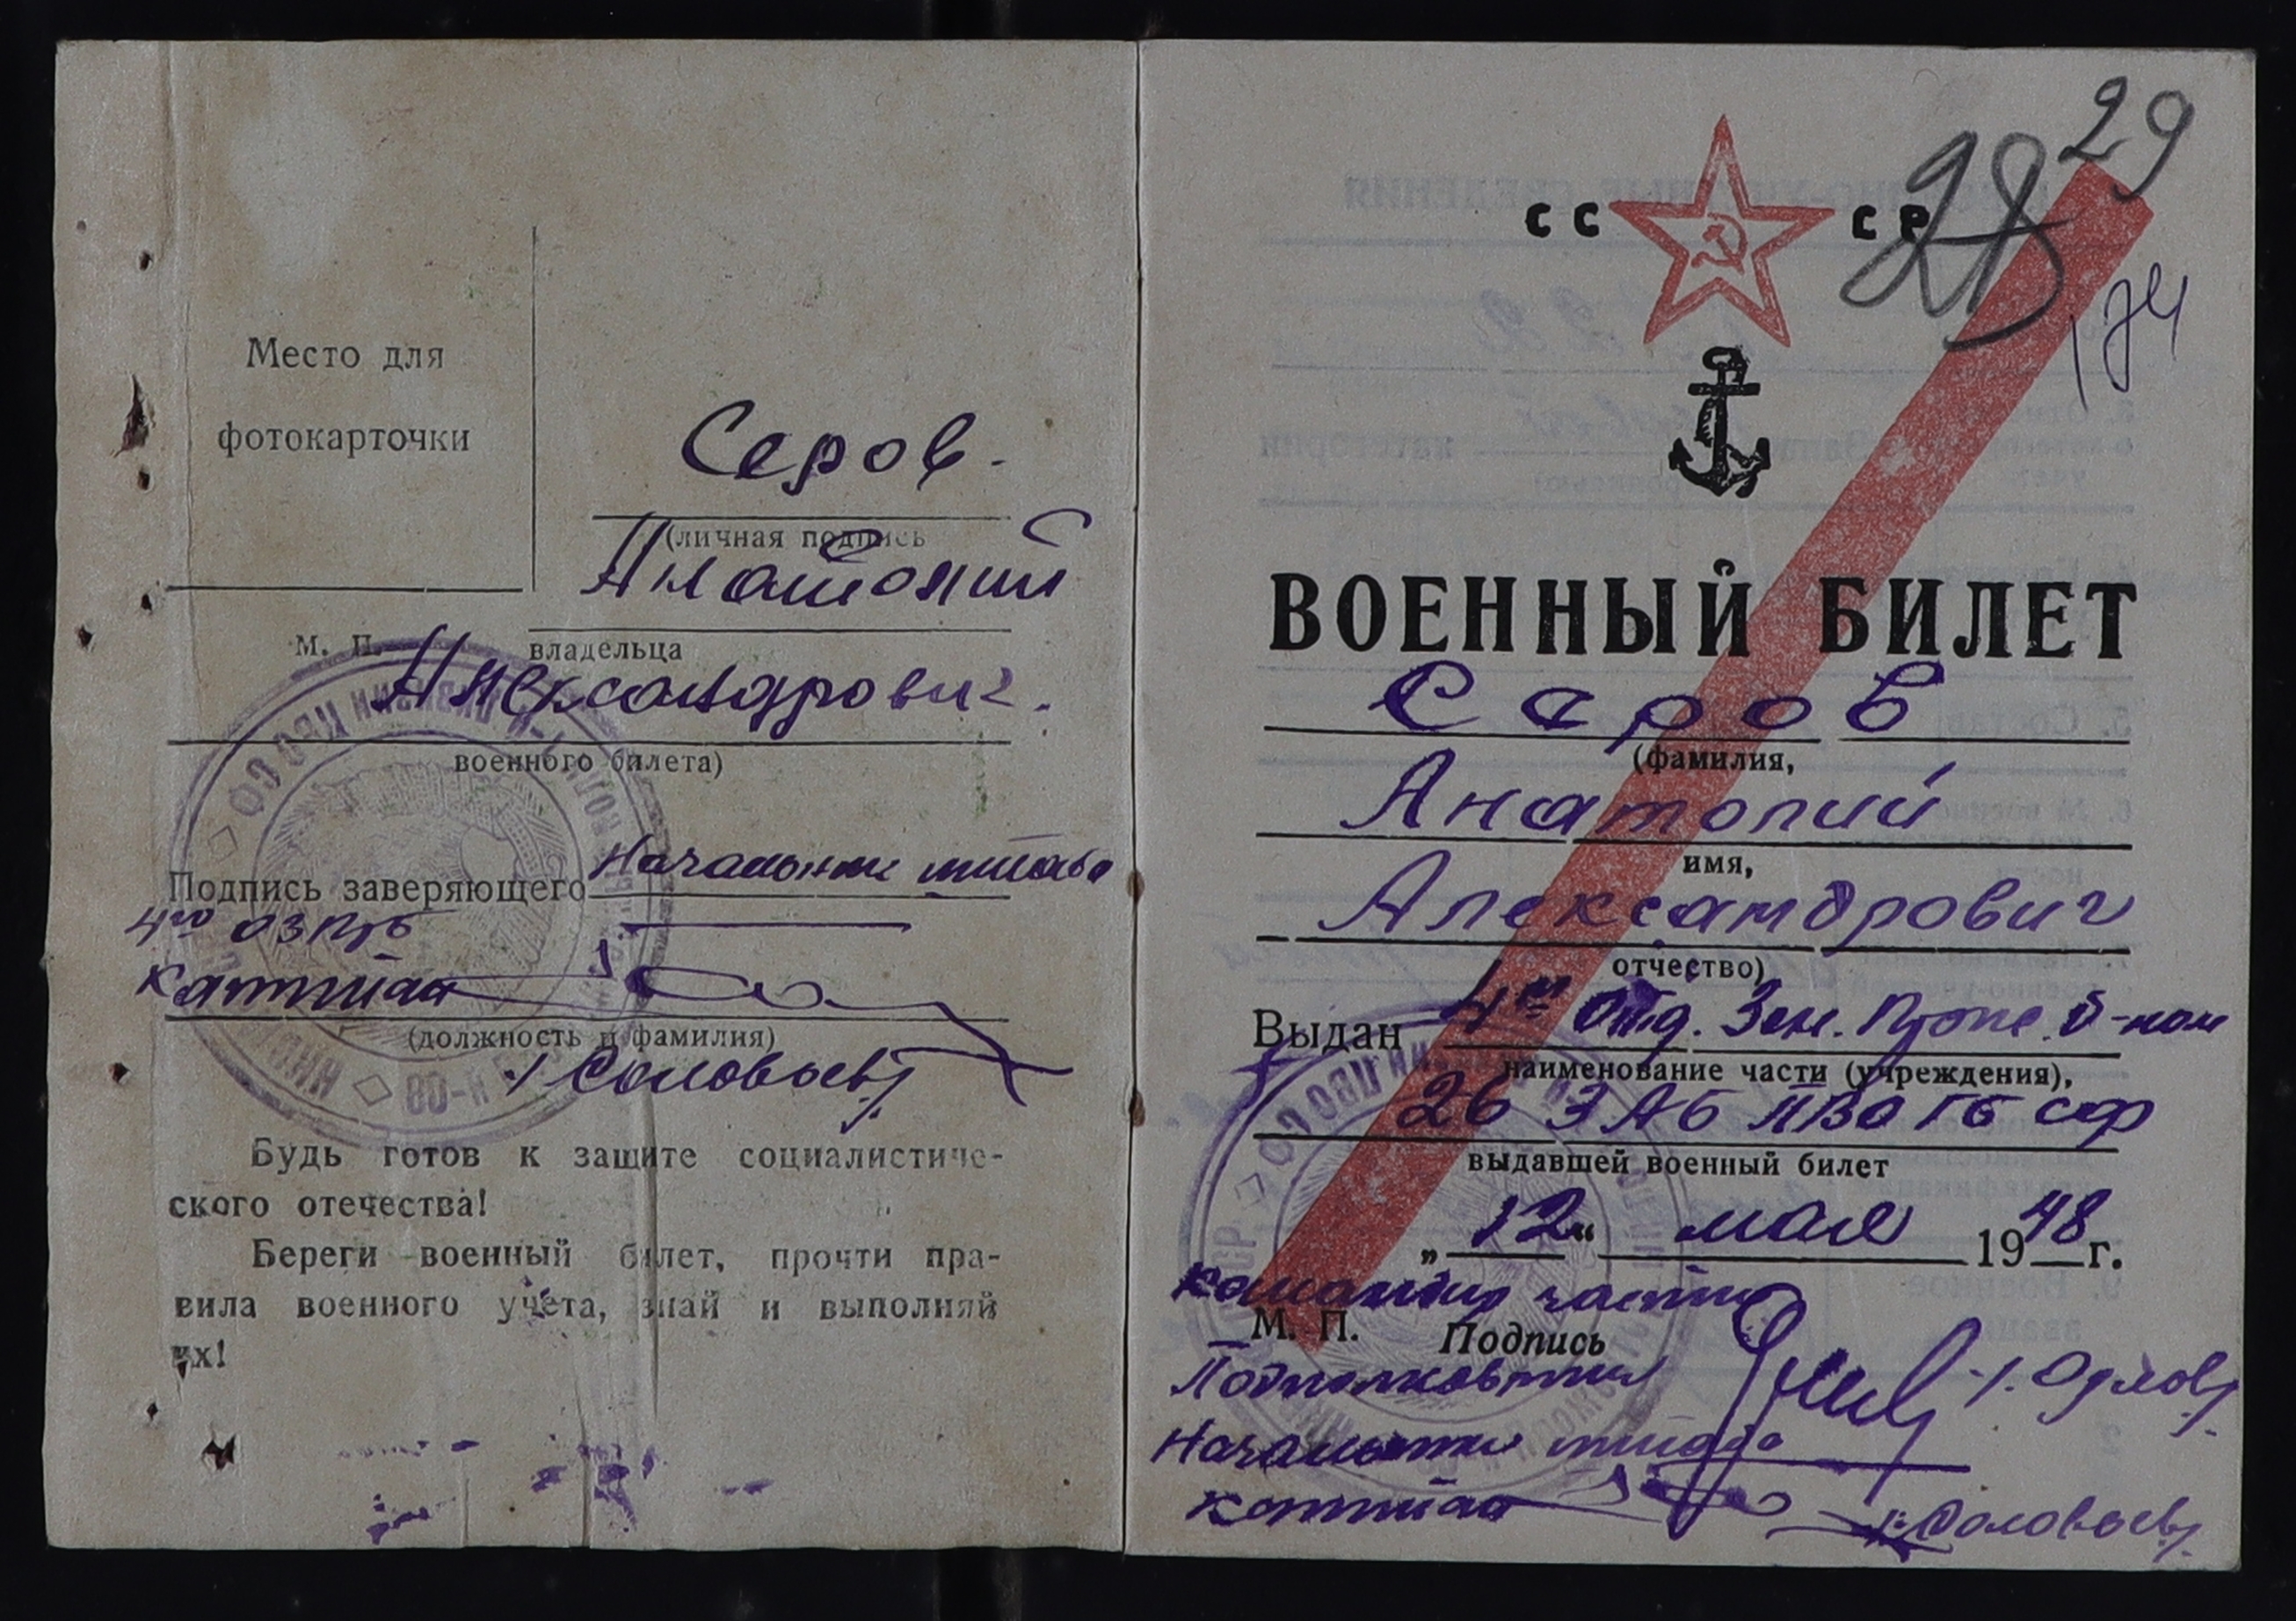 Место для
фотокарточки
Серов.
(личная подпись
Анатолий
М. П.
владельца
Александрович.
военного билета)
Подпись заверяющего Начальник штаба
4го ОЗПб
капитан
(должность и фамилия)
/Соловьев/
Будь готов к защите социалистиче-
ского отечества!
Береги военный билет, прочти пра-
вила военного учёта, знай и выполняй
их!
29
28
СС СР
174
ВОЕННЫЙ БИЛЕТ
Серов
(фамилия,
Анатолий
имя,
Александрович
отчество)
Выдан 4м Отд. Зен. Прож. б-ном
наименование части (учреждения),
26 ЗАБ ПВО ГБ СФ
выдавшей военный билет
„12“ мая 1948 г.
Командир части
М. П. Подпись
Подполковник /Орлов/
Начальник штаба
капитан /Соловьев/